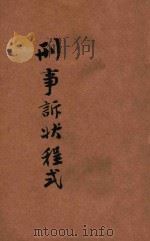 刑事訴狀程式